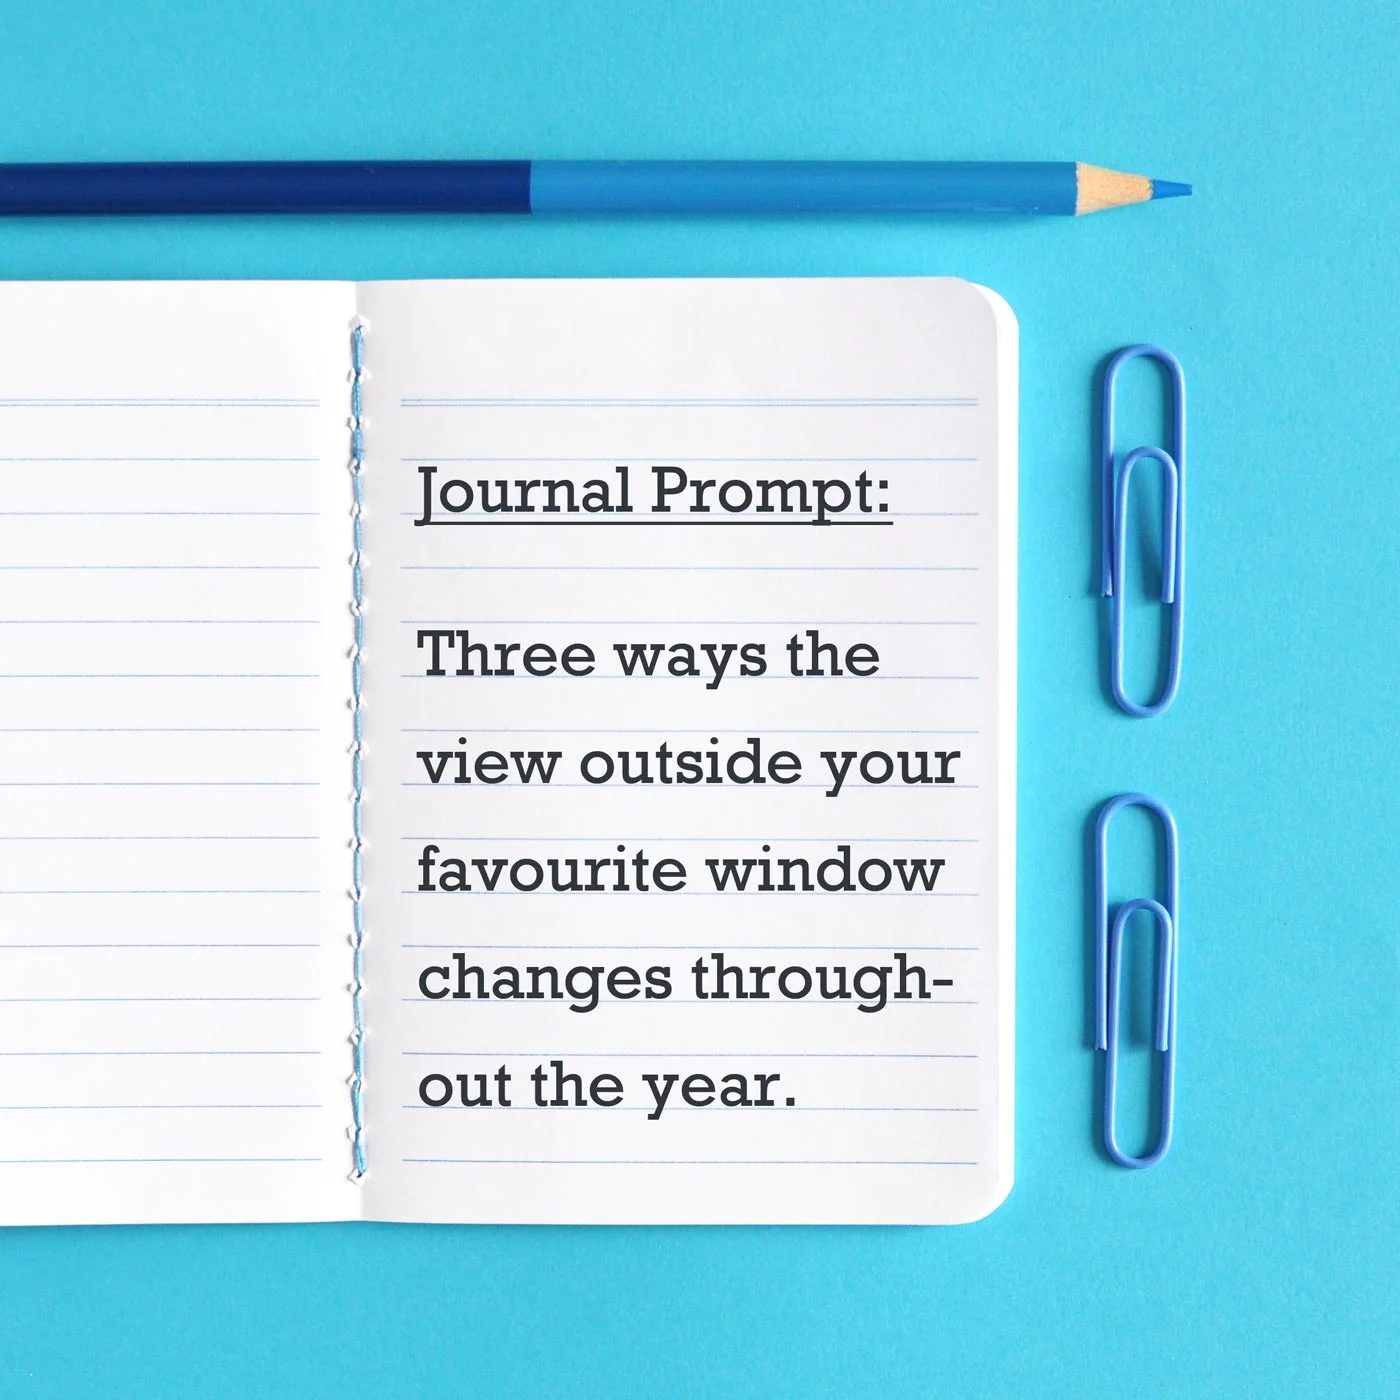 Journal Prompt:
Three ways the
view outside your
favourite window
changes through-
out the year.